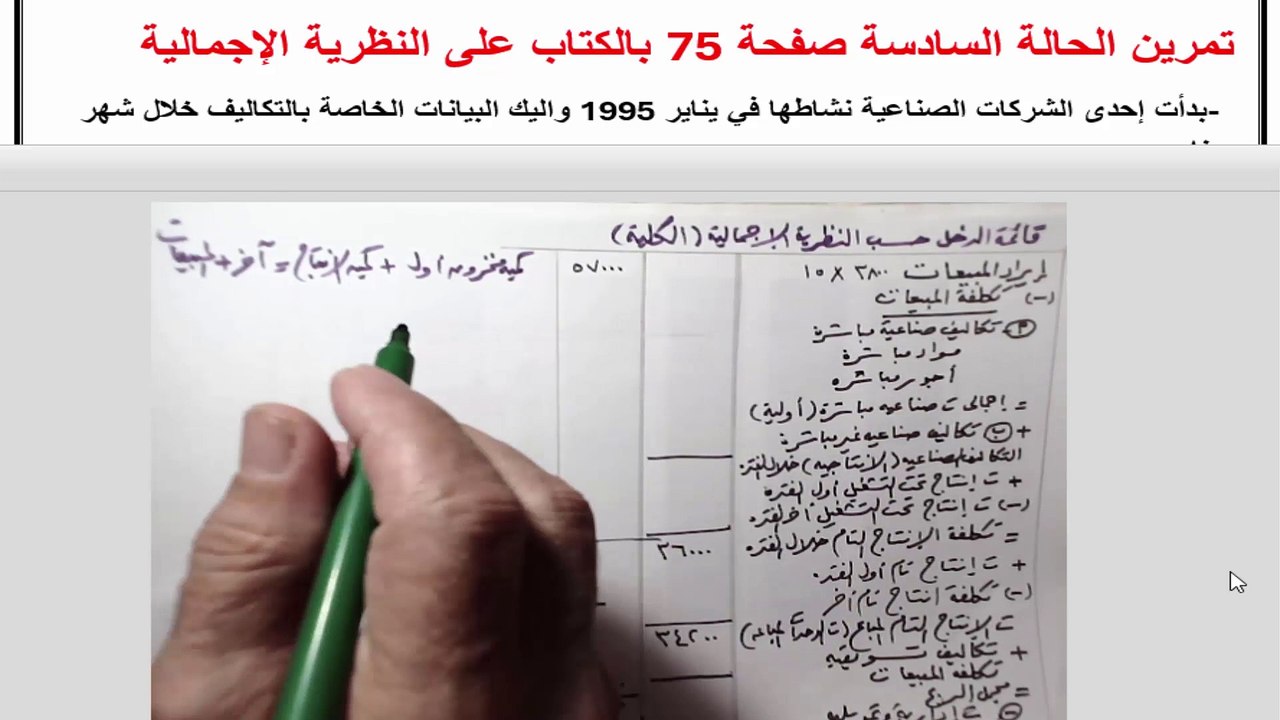 تمرين الحالة السادسة صفحة 75 بالكتاب على النظرية الإجمالية
-بدأت إحدى الشركات الصناعية نشاطها في يناير 1995 واليك البيانات الخاصة بالتكاليف خلال شهر
قائمة الدخل حسب النظرية الإجمالية (الكلية)
كمية مخزون أول + كمية الإنتاج = آخر + المبيعات
إيراد المبيعات ٣٨٠٠ × ١٥ ٥٧٠٠٠
(-) تكلفة المبيعات
(م) تكاليف صناعية مباشرة
مواد مباشرة
أجور مباشرة
= إجمالى ت صناعيه مباشرة (أولية)
+ (ب) تكاليف صناعيه غير مباشرة
التكاليف الصناعيه (الإنتاجيه) خلال الفتره
+ ت إنتاج تحت التشغيل أول الفترة
(-) ت إنتاج تحت التشغيل أخر الفتره
= تكلفة الإنتاج التام خلال الفتره ٣٦٠٠٠
+ ت إنتاج تام أول الفتره
(-) تكلفة انتاج تام أخر
ت الإنتاج التام المباع (ت الوحدات المباعه) ٣٤٢٠٠
+ تكاليف تسويقيه
تكلفه المبيعات
= مجمل الربح
(-) ت إدارية وتمويليه